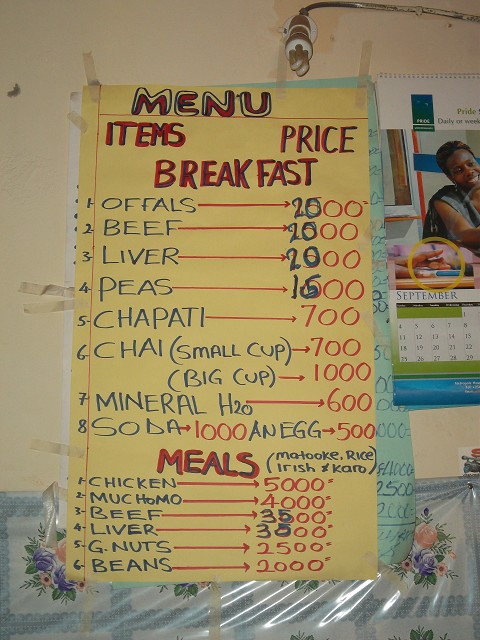 MENU
ITEMS PRICE
BREAKFAST
1- OFFALS 2000=
2- BEEF 2000
3- LIVER 2000
4- PEAS 1500
5- CHAPATI 700
6- CHAI (SMALL CUP) 700
(BIG CUP) 1000
7 MINERAL H2O 600
8 SODA 1000 AN EGG 500
MEALS (matooke, Rice
Irish & Karo)
1- CHICKEN 5000=
2- MUCHOMO 4000=
3- BEEF 3500=
4- LIVER 3500=
5- G.NUTS 2500=
6- BEANS 2000=
PRIDE
Pride
Daily or week
SEPTEMBER
1
4 5 6 7 8
11 12 13 14 15
18 19 20 21 22
25 26 27 28 29